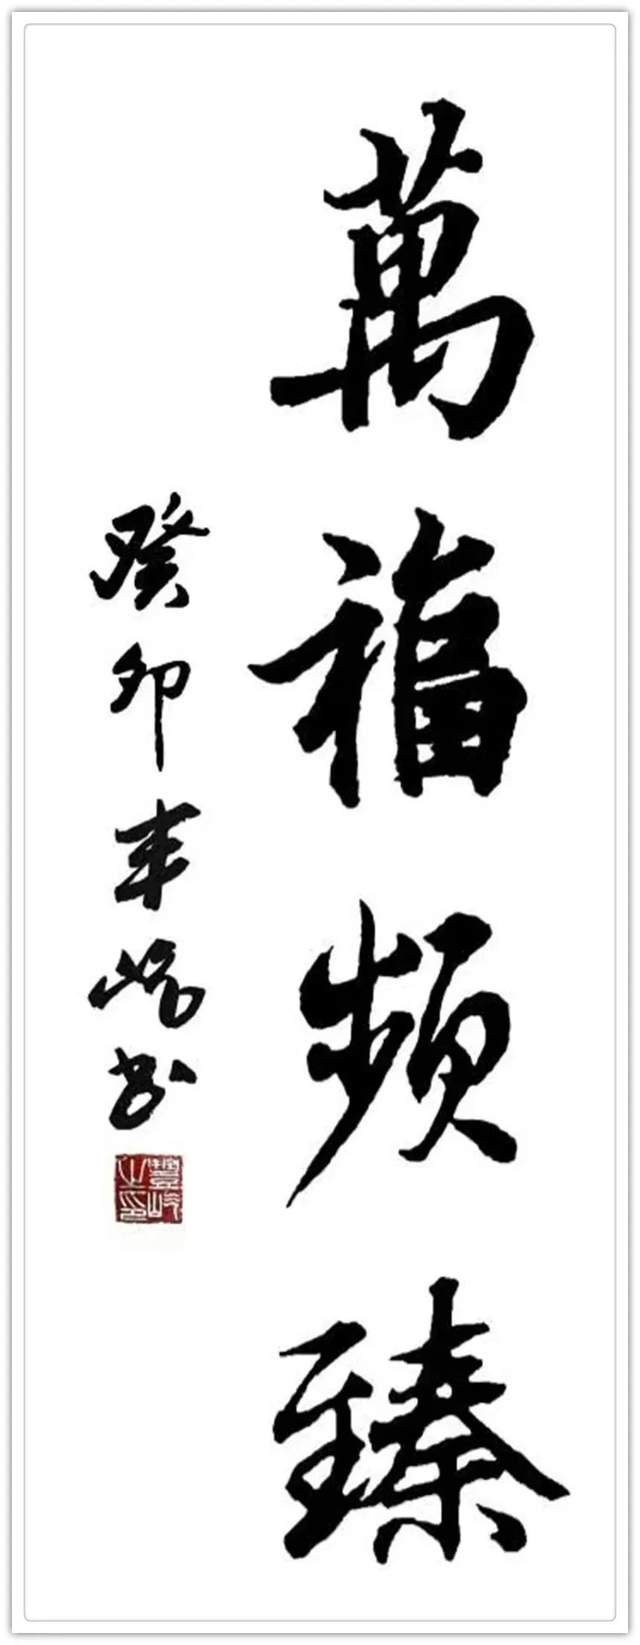 萬福頻臻
癸卯丰书